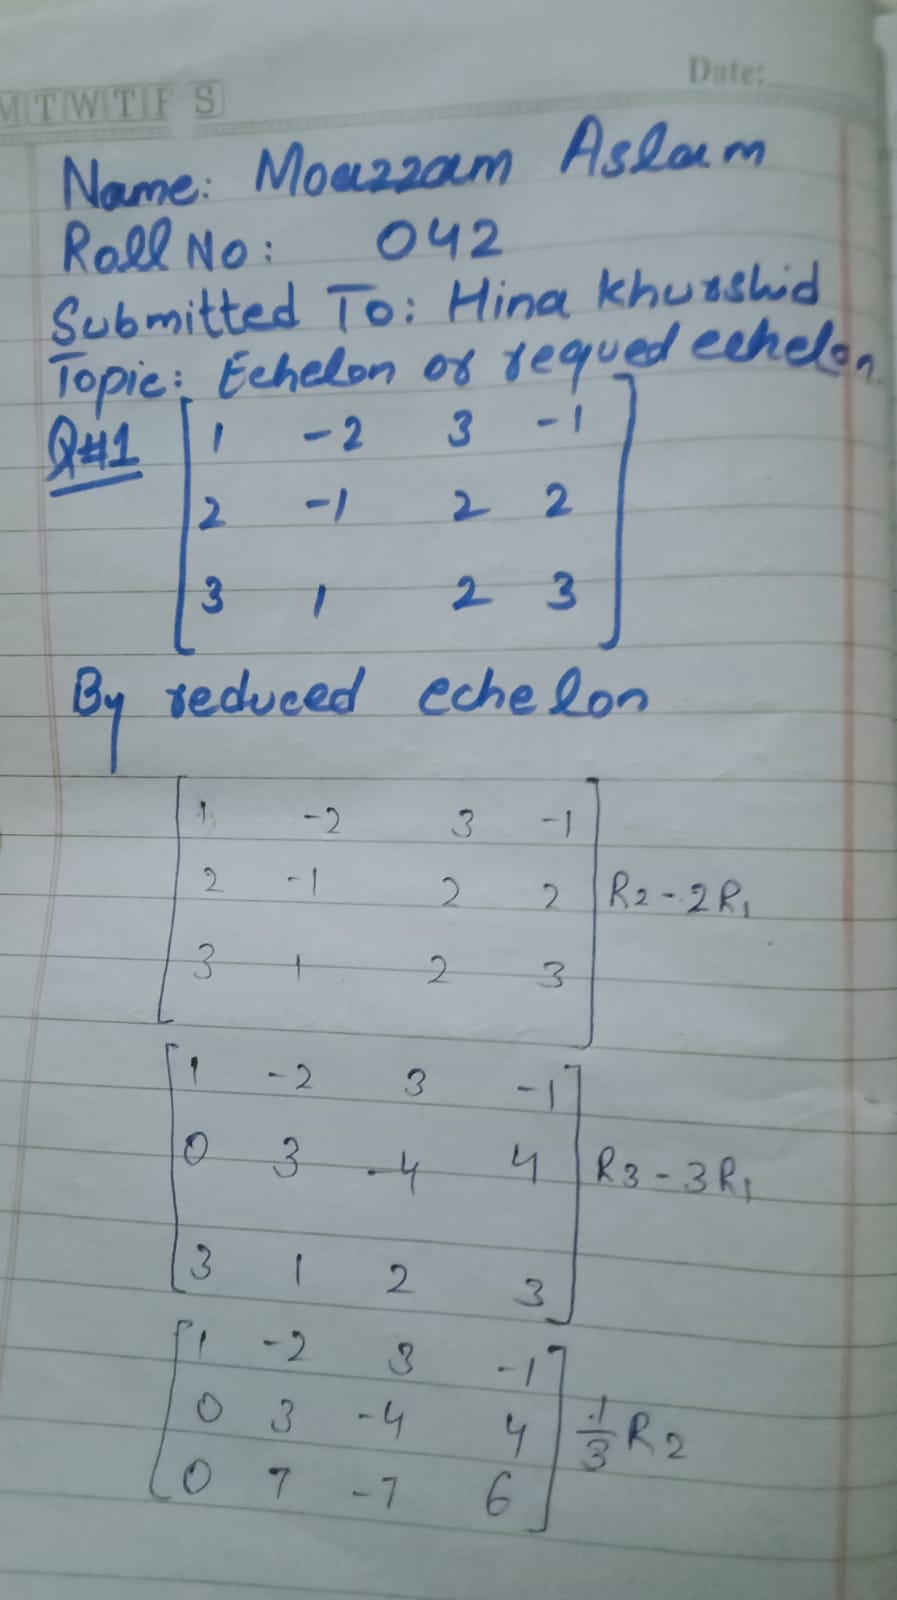 Date:
M T W T F S
Name: Moazzam Aslam
Roll No: 042
Submitted To: Hina Khurshid
Topic: Echelon or requed echelon
Q#1 [ 1 -2 3 -1
2 -1 2 2
3 1 2 3 ]
By reduced echelon
[ 1 -2 3 -1
2 -1 2 2 ] R2 - 2R1
3 1 2 3
[ 1 -2 3 -1
0 3 -4 4 ] R3 - 3R1
3 1 2 3
[ 1 -2 3 -1
0 3 -4 4 ] 1/3 R2
0 7 -7 6